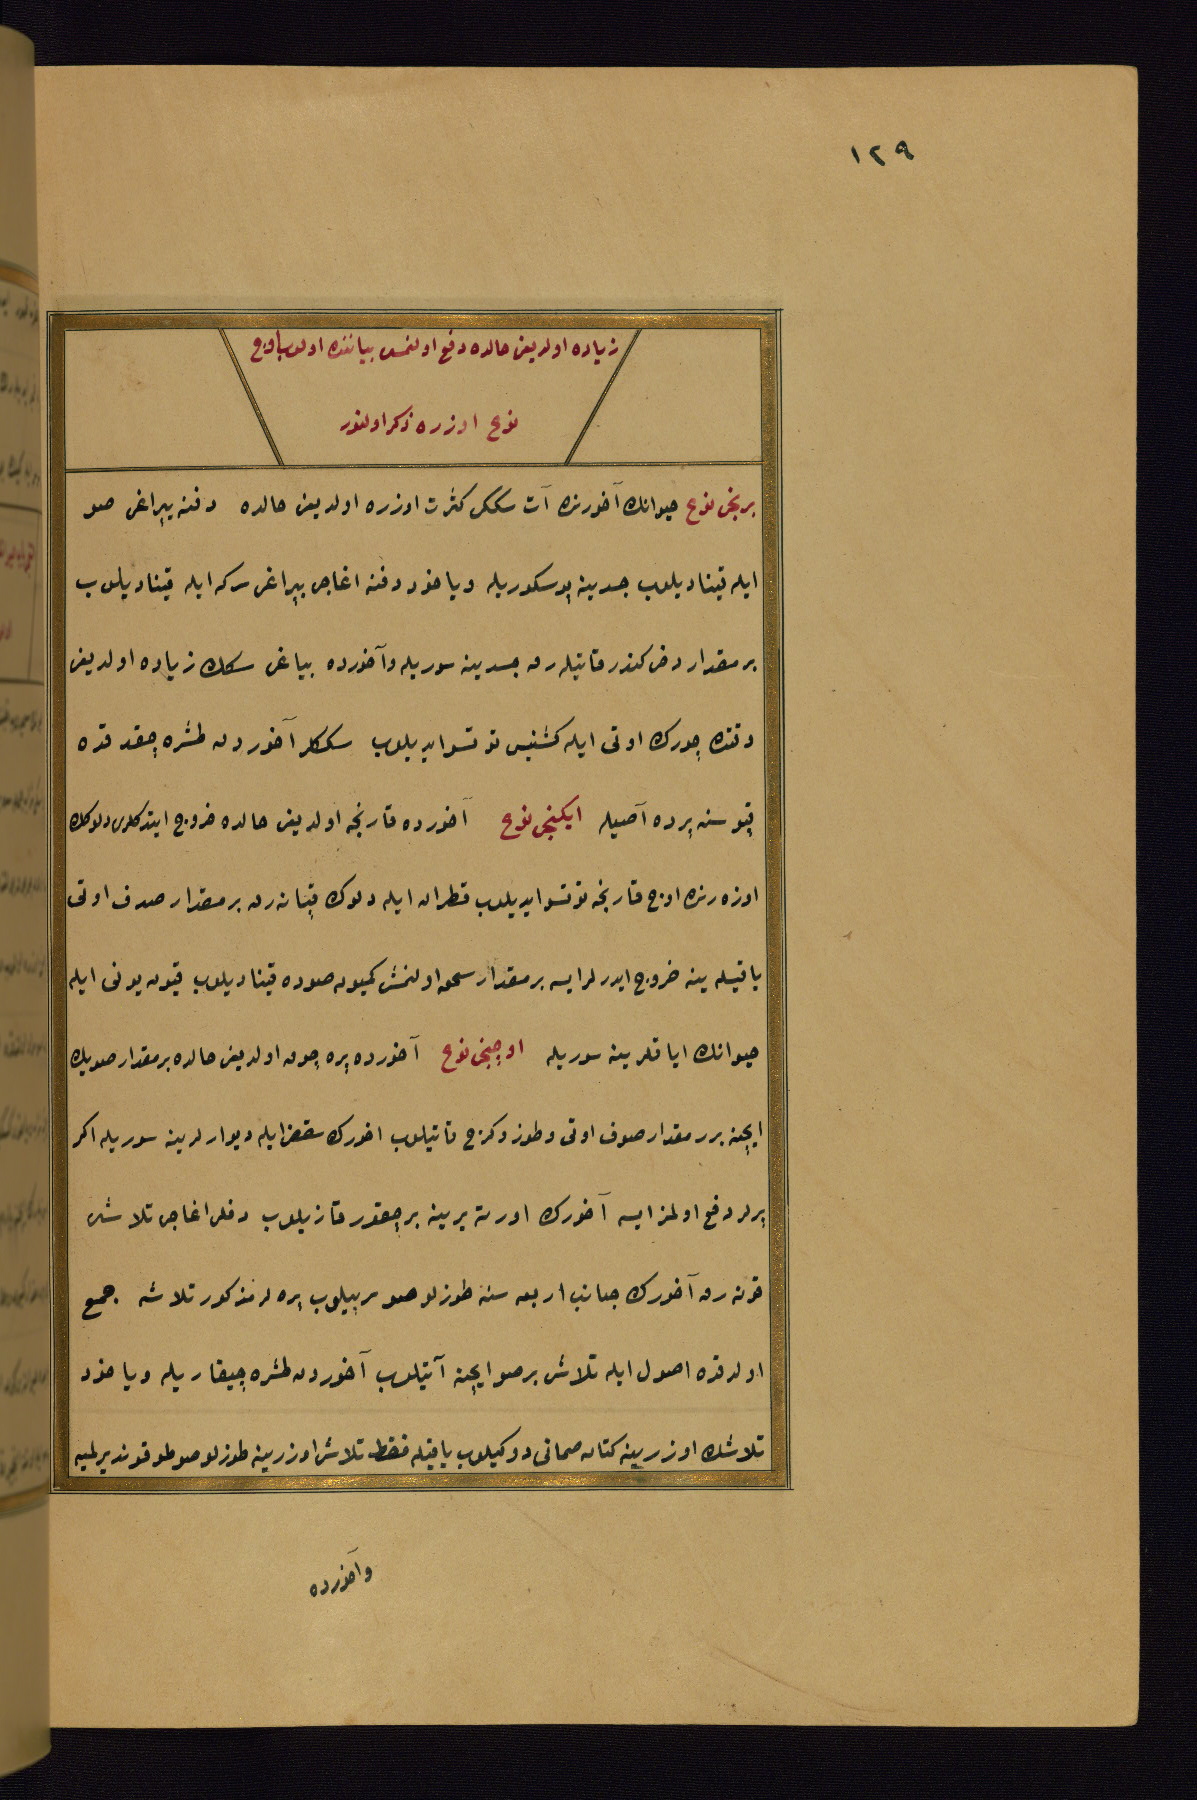 ١٢٩
زیاده اولدیغی حالده دفع اولنمسی بیاننده اولوب اوج
نوع اوزره ذکر اولنور
برنجی نوع حیوانك آخورنده آت سککی کثرت اوزره اولدیغی حالده دفنه یپراغی صو
ایله قینادیلوب جسدینه پوسکوریله ویاخود دفنه اغاجی یپراغی سرکه ایله قینادیلوب
بر مقدار دخی کندر قاتیله رق جسدینه سوریله وآخورده بیاغی سکك زیاده اولدیغی
وقتده چورك اوتی ایله کشنیس توتسو ایدیلوب سککلر آخوردن طشره چقدقده
قپوسنه پرده آصیله ایکنجی نوع آخورده قارنجه اولدیغی حالده خروج ایتدکلری دلوکك
اوزه رنده اوج قارنجه توتسو ایدیلوب قطران ایله دلوك قپانه رق بر مقدار صدف اوتی
یاقیله ینه خروج ایدرلر ایسه بر مقدار سحق اولنمش کمیون صوده قینادیلوب قیون یونی ایله
حیوانك ایاقلرینه سوریله اوچنجی نوع آخورده پره چوق اولدیغی حالده بر مقدار صویك
ایچنه برر مقدار صوف اوتی وطوز وکرج قاتیلوب اخورك سقفی ایله دیوارلرینه سوریله اکر
پرلر دفع اولمز ایسه آخورك اورته یرینه بر چقور قازیلوب دفلی اغاجی تلاشی
قونه رق آخورك جوانب اربعه سنه طوزلو صو سرپیلوب پره لر مذکور تلاشه جمع
اولدقده اصول ایله تلاشی بر صو ایچنه آتیلوب آخوردن طشره چیقاریله ویاخود
تلاشك اوزرینه کتان صمانی دوکیلوب یاقیله فقط تلاشی اوزرینه طوزلو صو طوقوندیرلمیه
وآخورده